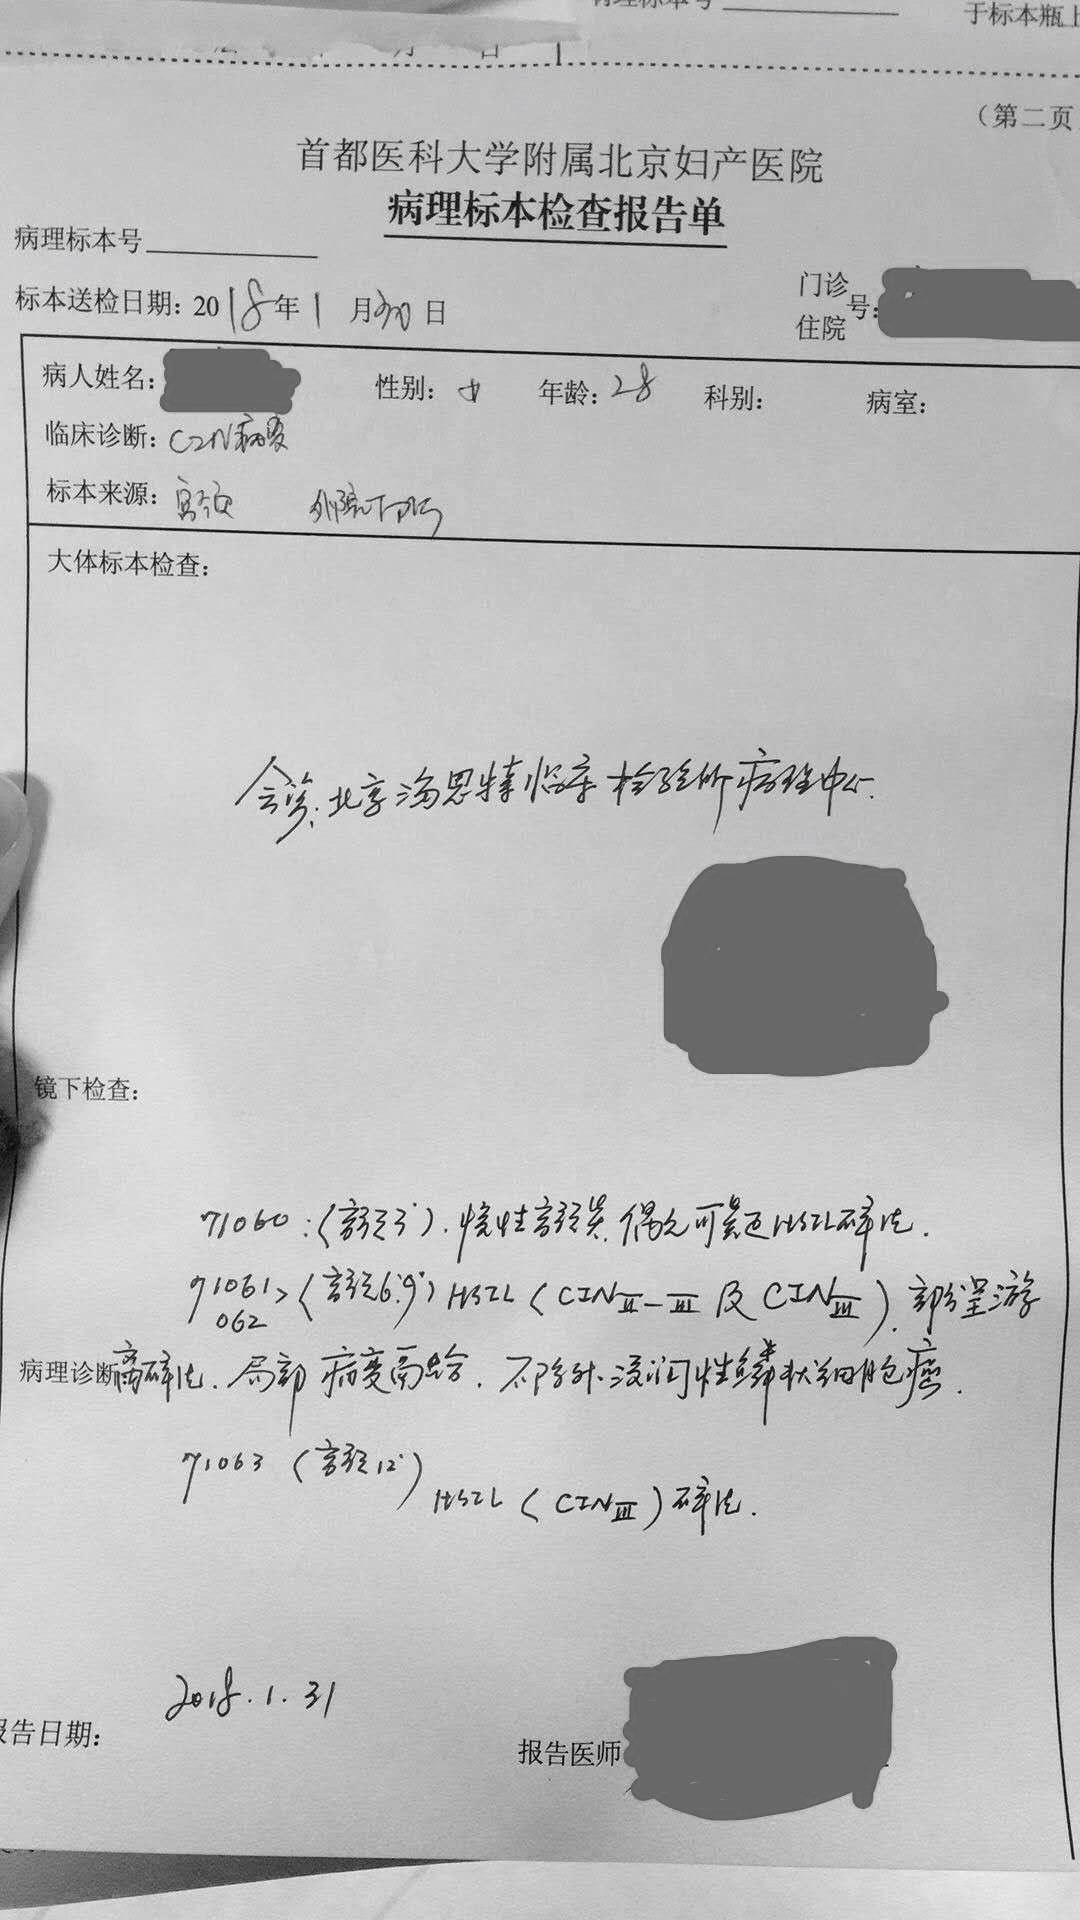 病理标本号
于标本瓶上
（第二页
首都医科大学附属北京妇产医院
病理标本检查报告单
病理标本号
标本送检日期：2018年1月30日
门诊
住院 号：
病人姓名： 性别：女 年龄：28 科别： 病室：
临床诊断：CIN病变
标本来源：宫颈 外院
大体标本检查：
会诊：北京海思特临床检验所病理中心.
镜下检查：
71060：(宫颈3°). 慢性宫颈炎, 偶见可疑HSIL碎片.
71061, (宫颈6°.9°) HSIL (CINII-III 及 CINIII). 部分呈游
062
病理诊断 离碎片. 局部病变 不除外浸润性鳞状细胞癌.
71063 (宫颈12°)
HSIL (CINIII) 碎片.
2018.1.31
报告日期：
报告医师